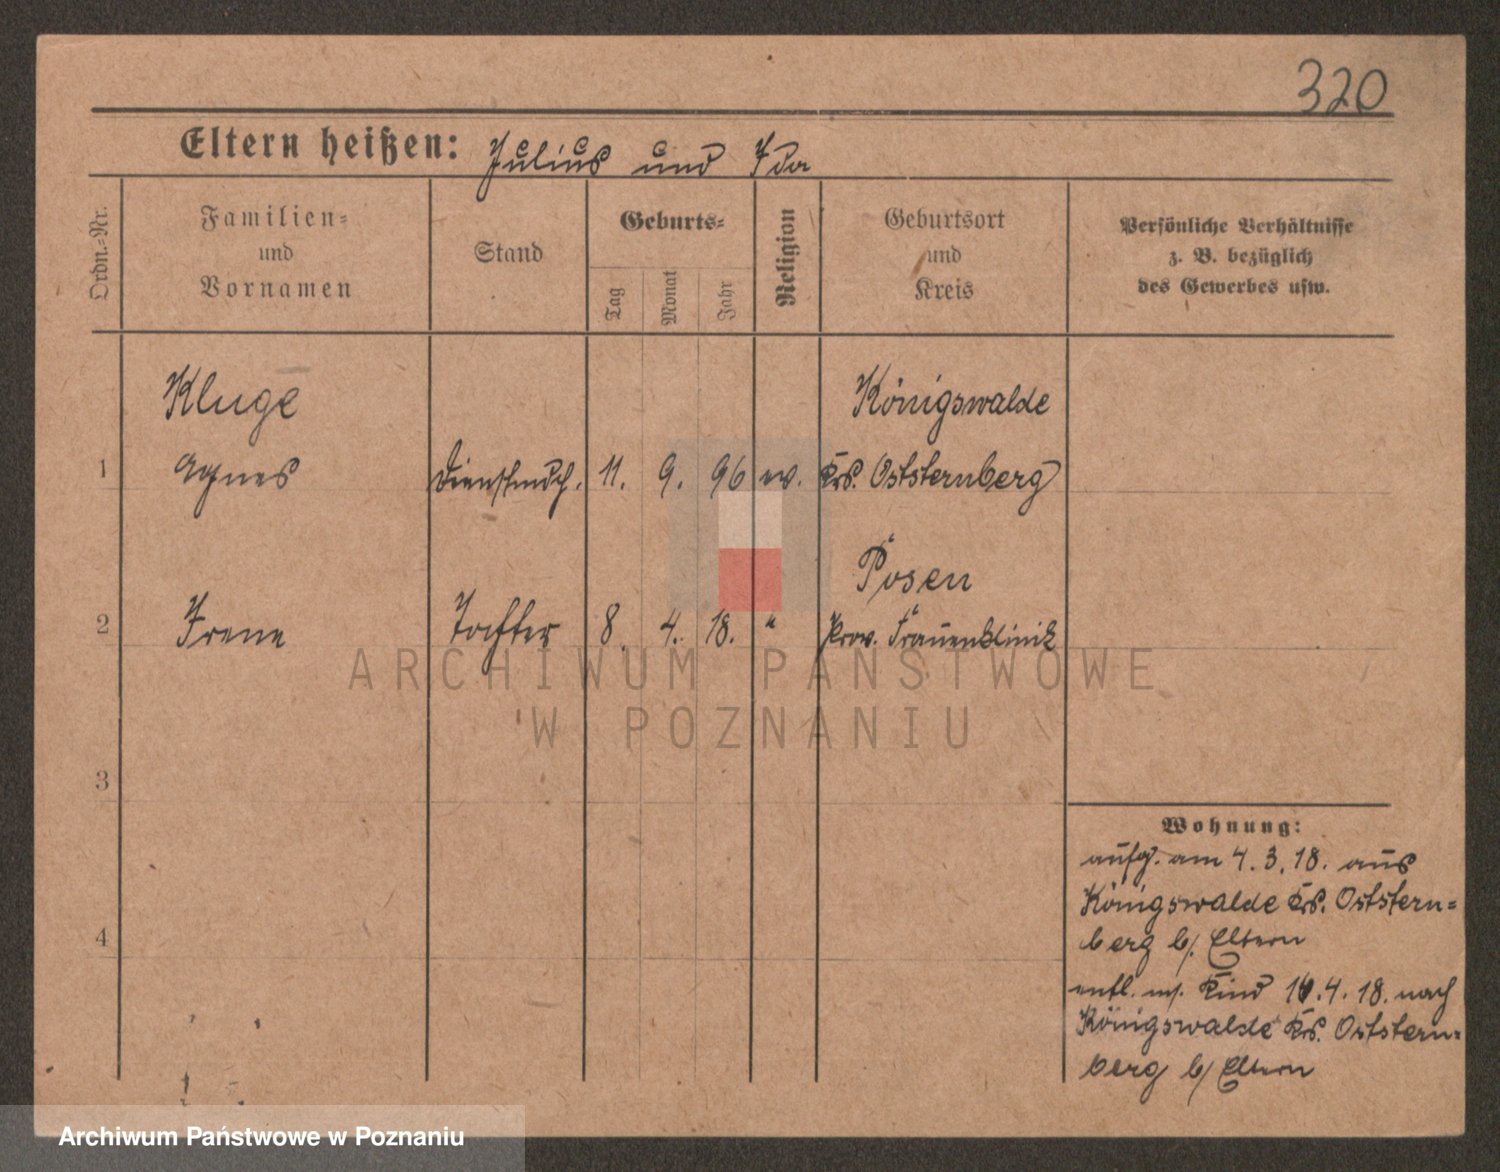 320
Eltern heißen: Julius und Ida
Ordn.-Nr.
Familien-
und
Vornamen
Stand
Geburts-
Tag
Monat
Jahr
Religion
Geburtsort
und
Kreis
Persönliche Verhältnisse
z. B. bezüglich
des Gewerbes usw.
Kluge
Königswalde
1 Agnes Dienstmdch. 11. 9. 96 ev. Krs. Oststernberg
Posen
2 Irene Tochter 8. 4. 18. " Prov. Frauenklinik
ARCHIWUM PAŃSTWOWE
W POZNANIU
3
Wohnung:
aufg. am 4.3.18. aus
Königswalde Krs. Oststern=
4
berg b/. Eltern
entl. m/. Kind 4.18. nach
Königswalde Krs. Oststern=
berg b/ Eltern
Archiwum Państwowe w Poznaniu